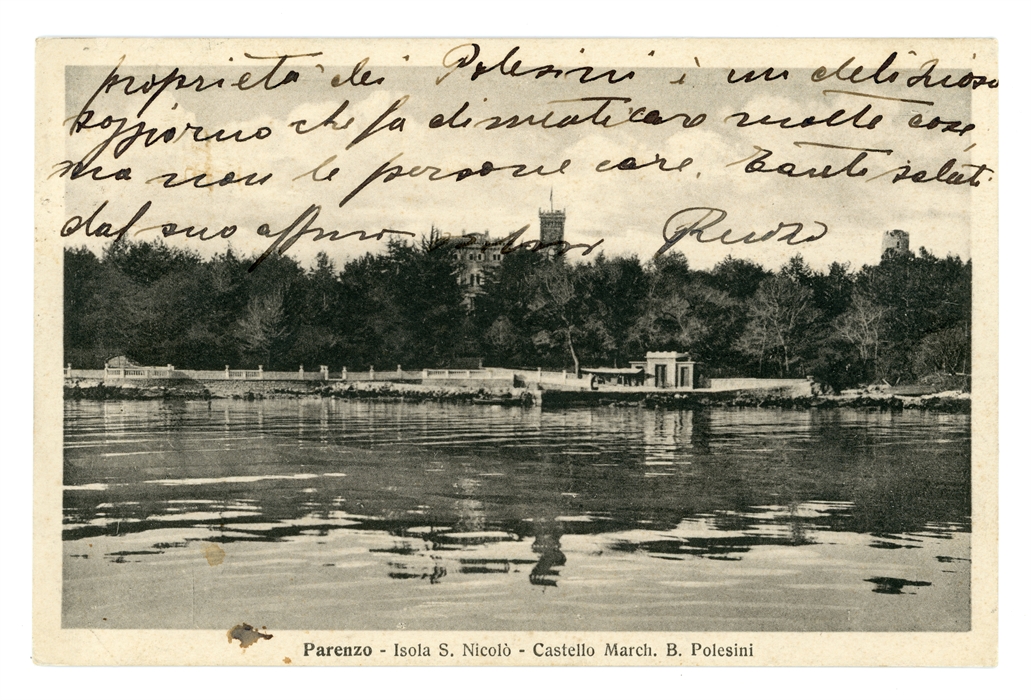 proprietà dei Polesini è un delizioso
soggiorno che fa dimenticare molte cose,
ma non le persone care. Tanti saluti
dal suo affmo Renzo
Parenzo - Isola S. Nicolò - Castello March. B. Polesini